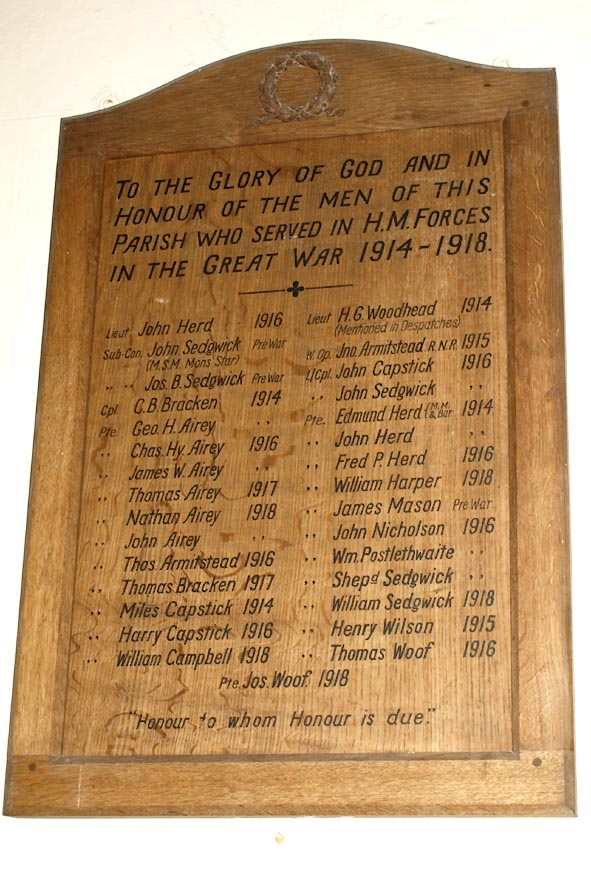 TO THE GLORY OF GOD AND IN
HONOUR OF THE MEN OF THIS
PARISH WHO SERVED IN H.M. FORCES
IN THE GREAT WAR 1914-1918.
Lieut John Herd 1916
Sub-Con. John Sedgwick Pre War
(M.S.M. Mons Star)
,, ,, Jos. B. Sedgwick Pre War
Cpl. C.B. Bracken 1914
Pte. Geo. H. Airey ,,
,, Chas. Hy. Airey 1916
,, James W. Airey ,,
,, Thomas Airey 1917
,, Nathan Airey 1918
,, John Airey ,,
,, Thos. Armitstead 1916
,, Thomas Bracken 1917
,, Miles Capstick 1914
,, Harry Capstick 1916
,, William Campbell 1918
Lieut H.G. Woodhead 1914
(Mentioned in Despatches)
W. Op. Jno. Armitstead R.N.R. 1915
L/Cpl. John Capstick 1916
,, John Sedgwick ,,
Pte. Edmund Herd (M.M. & Bar 1914
,, John Herd ,,
,, Fred P. Herd 1916
,, William Harper 1918
,, James Mason Pre War
,, John Nicholson 1916
,, Wm. Postlethwaite ,,
,, Shepd Sedgwick ,,
,, William Sedgwick 1918
,, Henry Wilson 1915
,, Thomas Woof 1916
Pte. Jos. Woof. 1918
"Honour to whom Honour is due."